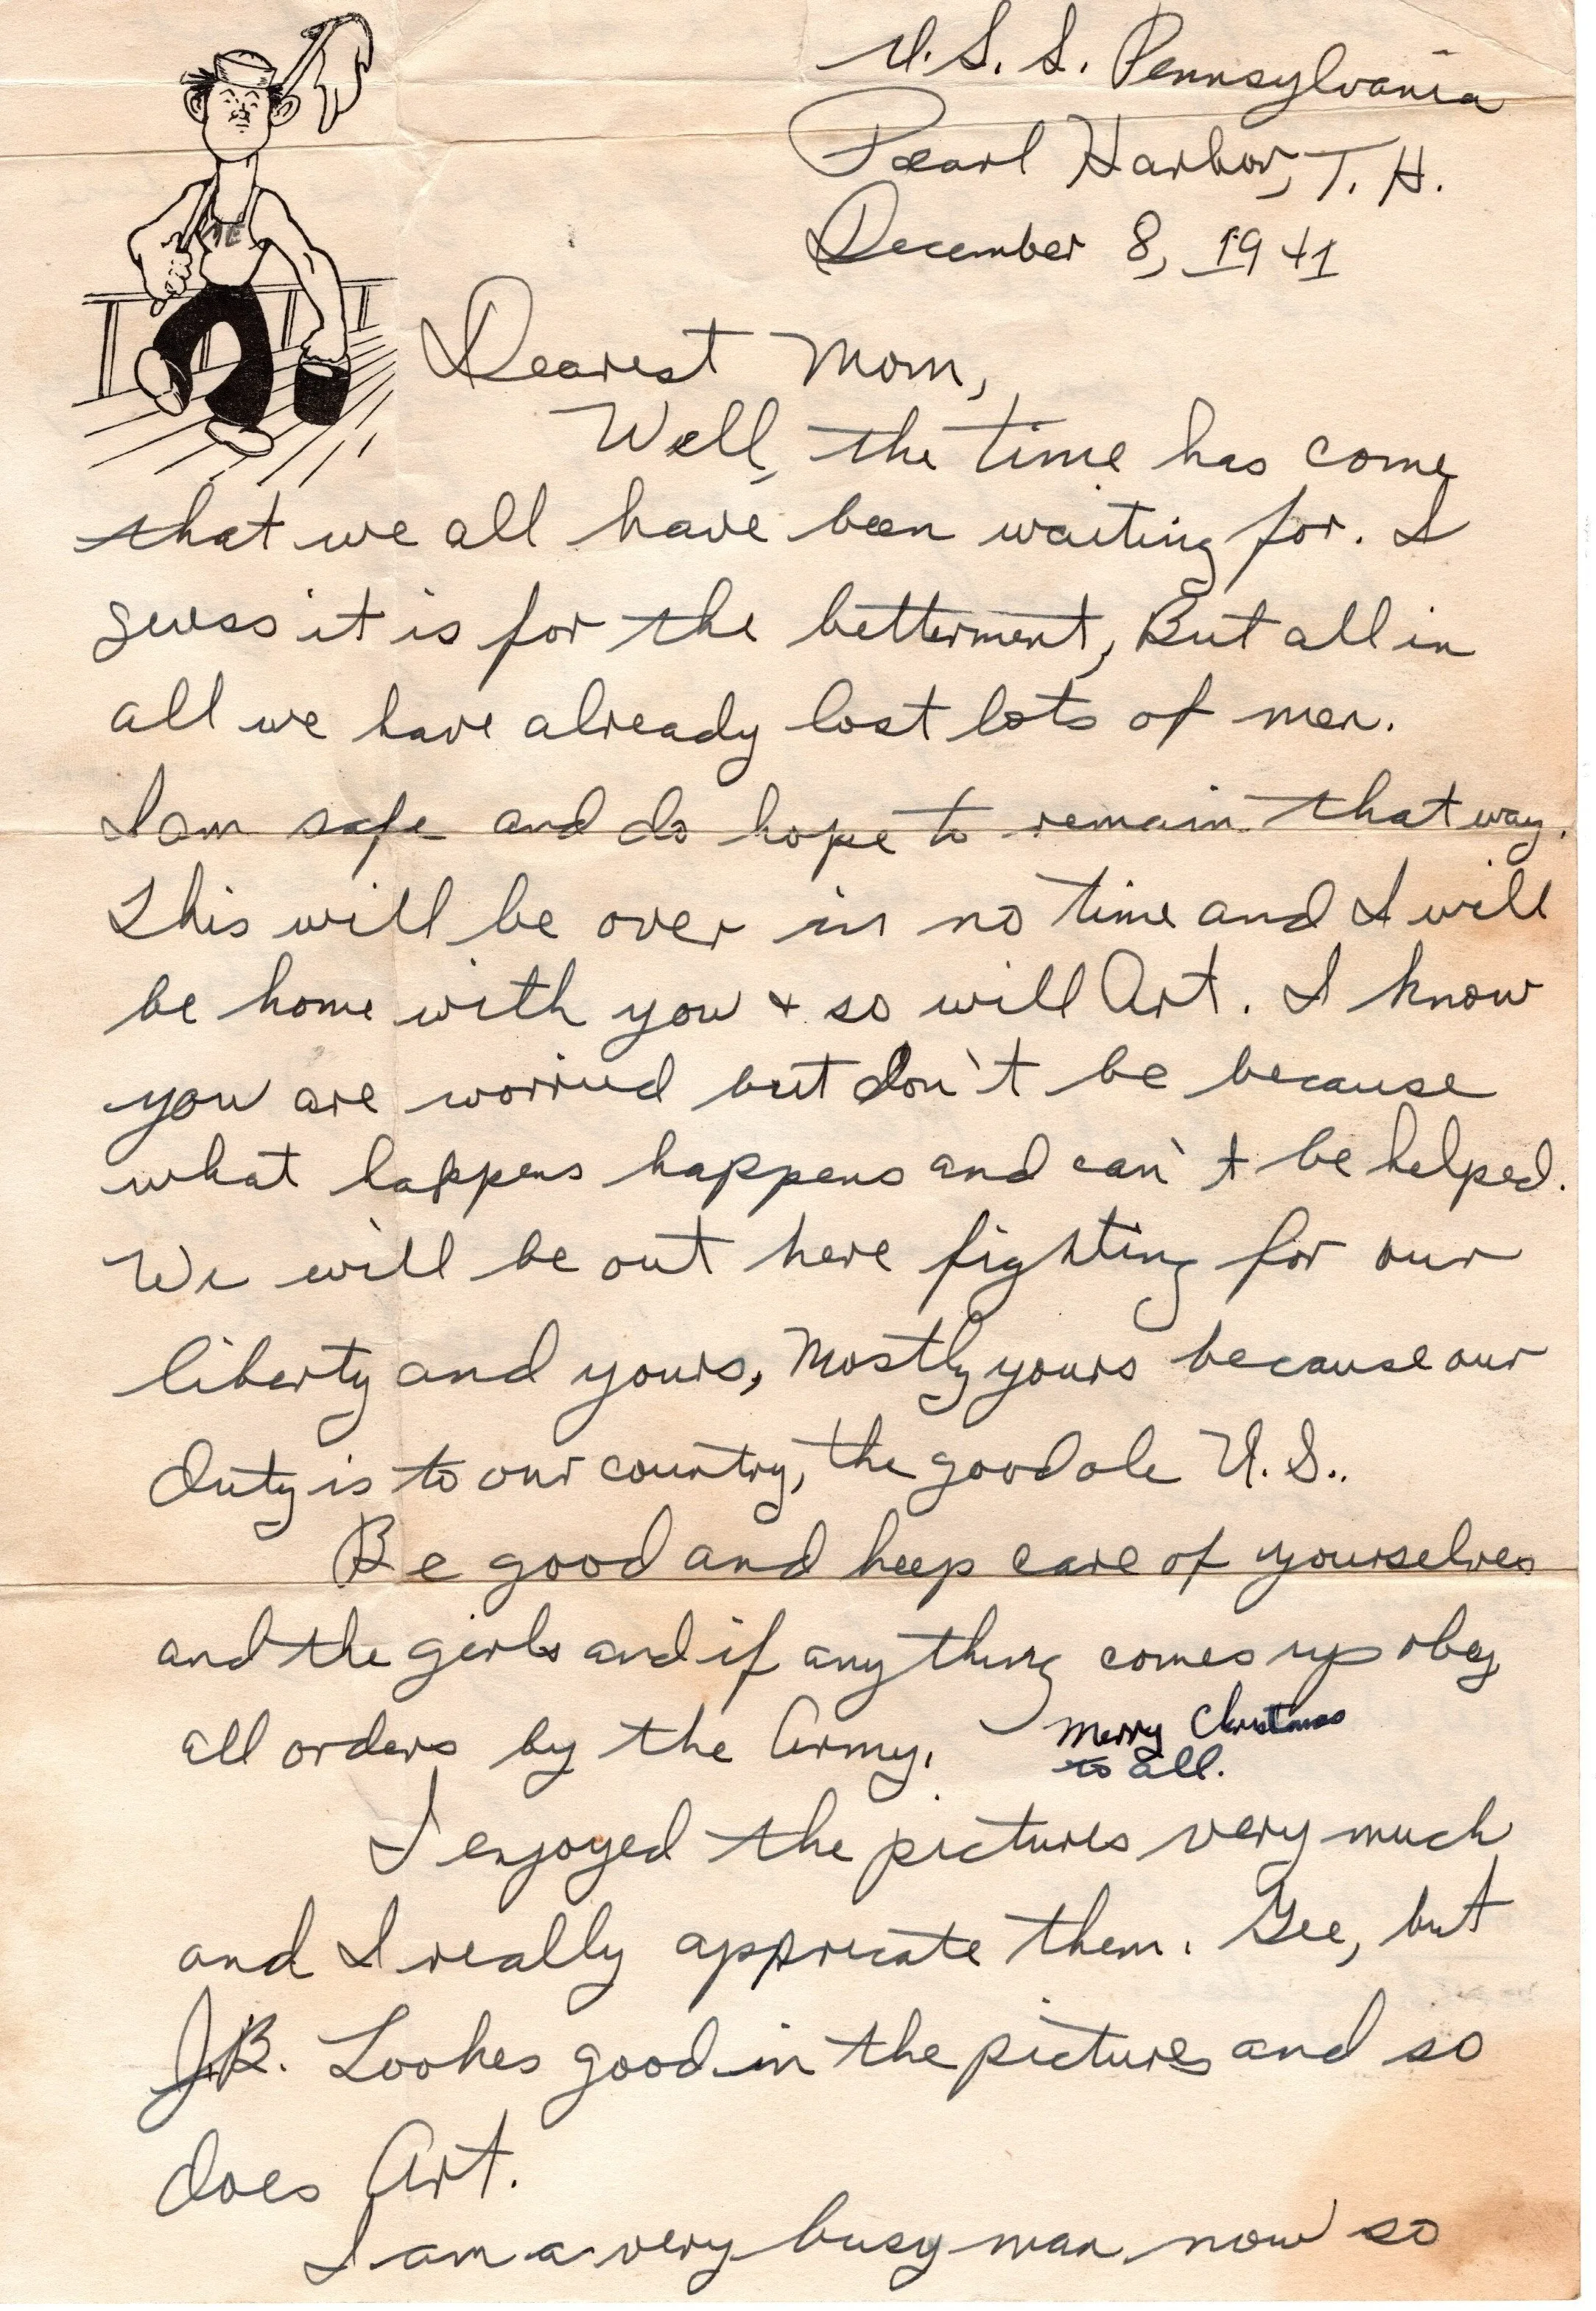 U.S.S. Pennsylvania
Pearl Harbor, T.H.
December 8, 1941
Dearest Mom,
Well, the time has come
that we all have been waiting for. I
guess it is for the betterment, But all in
all we have already lost lots of men.
I am safe and do hope to remain that way.
This will be over in no time and I will
be home with you + so will Art. I know
you are worried but don't be because
what happens happens and can't be helped.
We will be out here fighting for our
liberty and yours, Mostly yours because our
duty is to our country, the good ole U.S..
Be good and keep care of yourselves
and the girls and if anything comes up obey
all orders by the Army.
Merry Christmas
to all.
I enjoyed the pictures very much
and I really appricate them. Gee, but
J.B. Lookes good in the pictures and so
does Art.
I am a very busy man now so